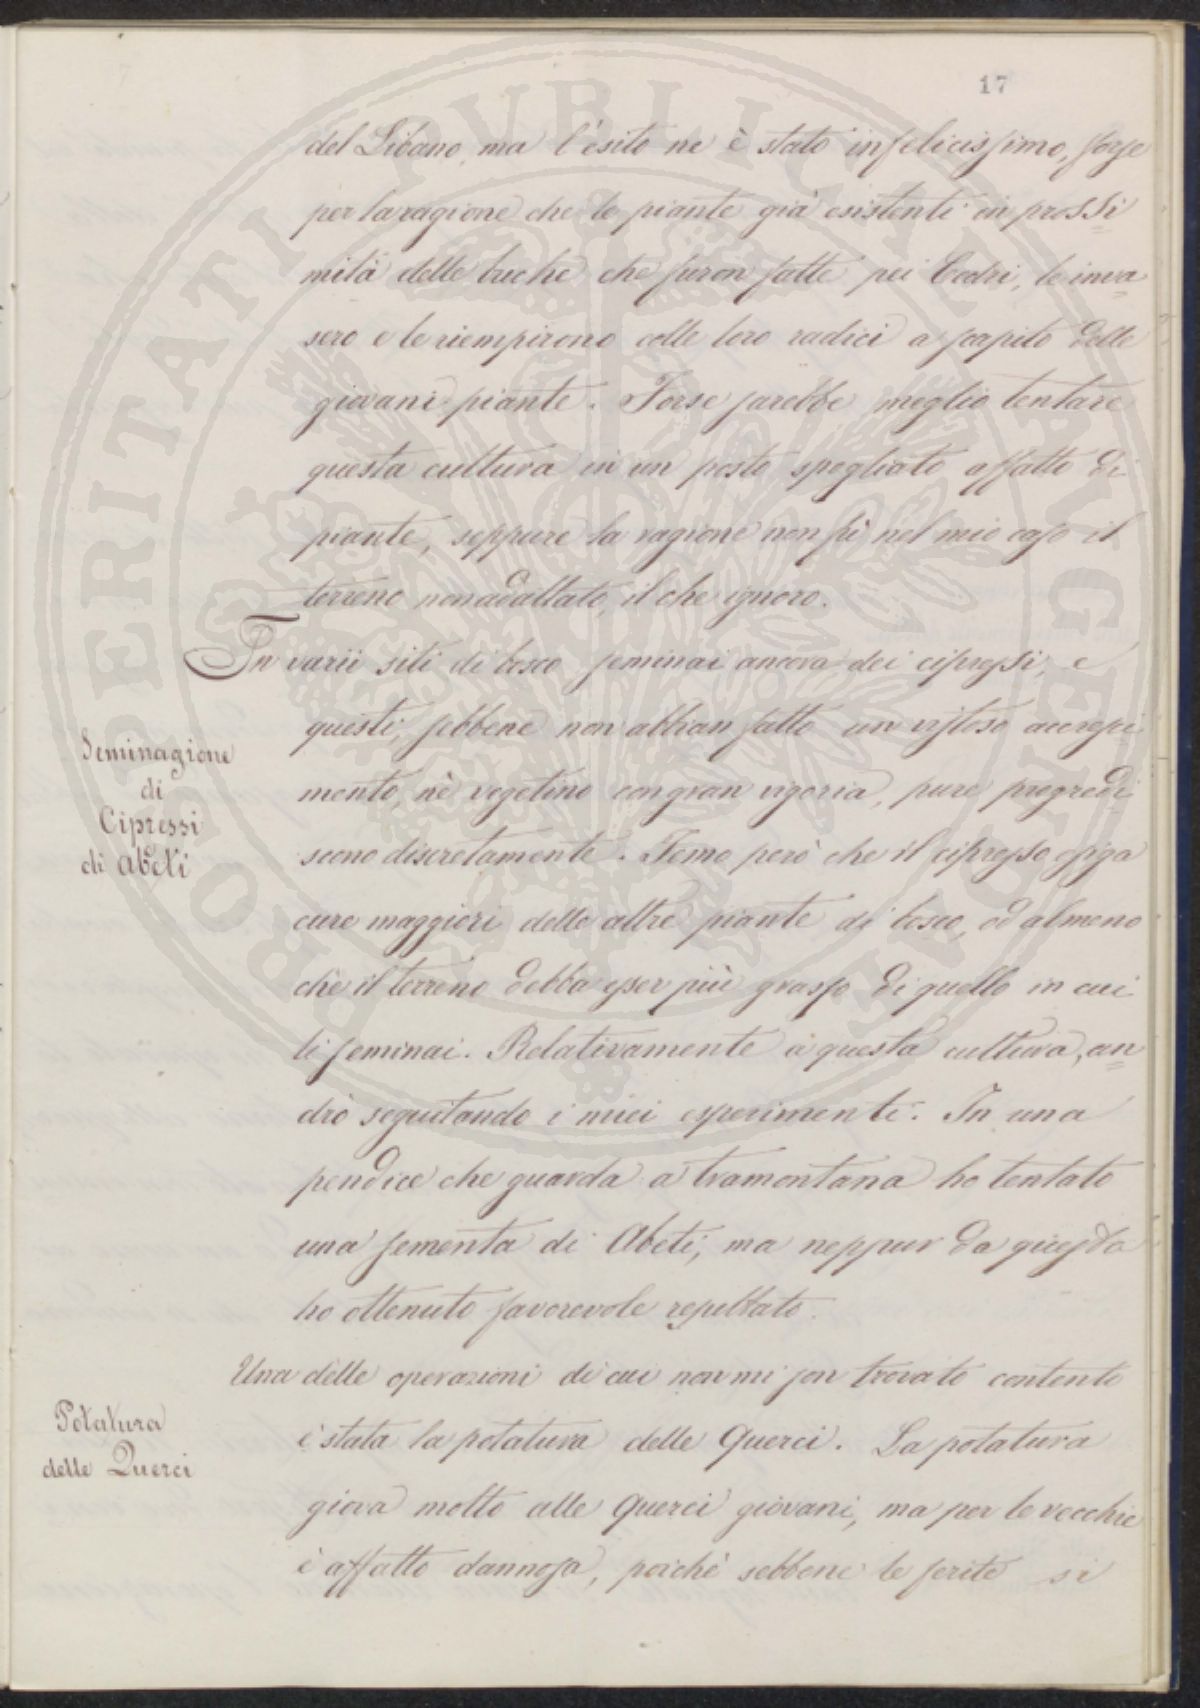 17
del Libano, ma l'esito ne è stato infelicissimo, forse
per la ragione che le piante già esistenti in prossi
mità delle buche che furon fatte pei Cedri, le inva
sero e le riempirono colle loro radici a scapito delle
giovani piante. Forse sarebbe meglio tentare
questa cultura in un posto spogliato affatto di
piante, seppure la ragione non fù nel mio caso il
terreno non adattato, il che ignoro.
In varii siti di bosco seminai ancora dei cipressi, e
questi, sebbene non abbian fatto un vistoso accresci
mento, nè vegetino con gran vigoria, pure progredi
scono discretamente. Temo però che il cipresso esiga
cure maggiori delle altre piante di bosco, od almeno
che il terreno debba esser più grasso di quello in cui
li seminai. Relativamente a questa cultura, an
drò seguitando i miei esperimenti. In una
pendice che guarda a tramontana ho tentato
una sementa di Abeti, ma neppur da questa
ho ottenuto favorevole resultato.
Una delle operazioni di cui non mi son trovato contento
è stata la potatura delle Querci. La potatura
giova molto alle Querci giovani, ma per le vecchie
è affatto dannosa, poichè sebbene le ferite si
Seminagione
di
Cipressi
di Abeti
Potatura
delle Querci
PROSPERITATI PVBLICAE AVGENDAE